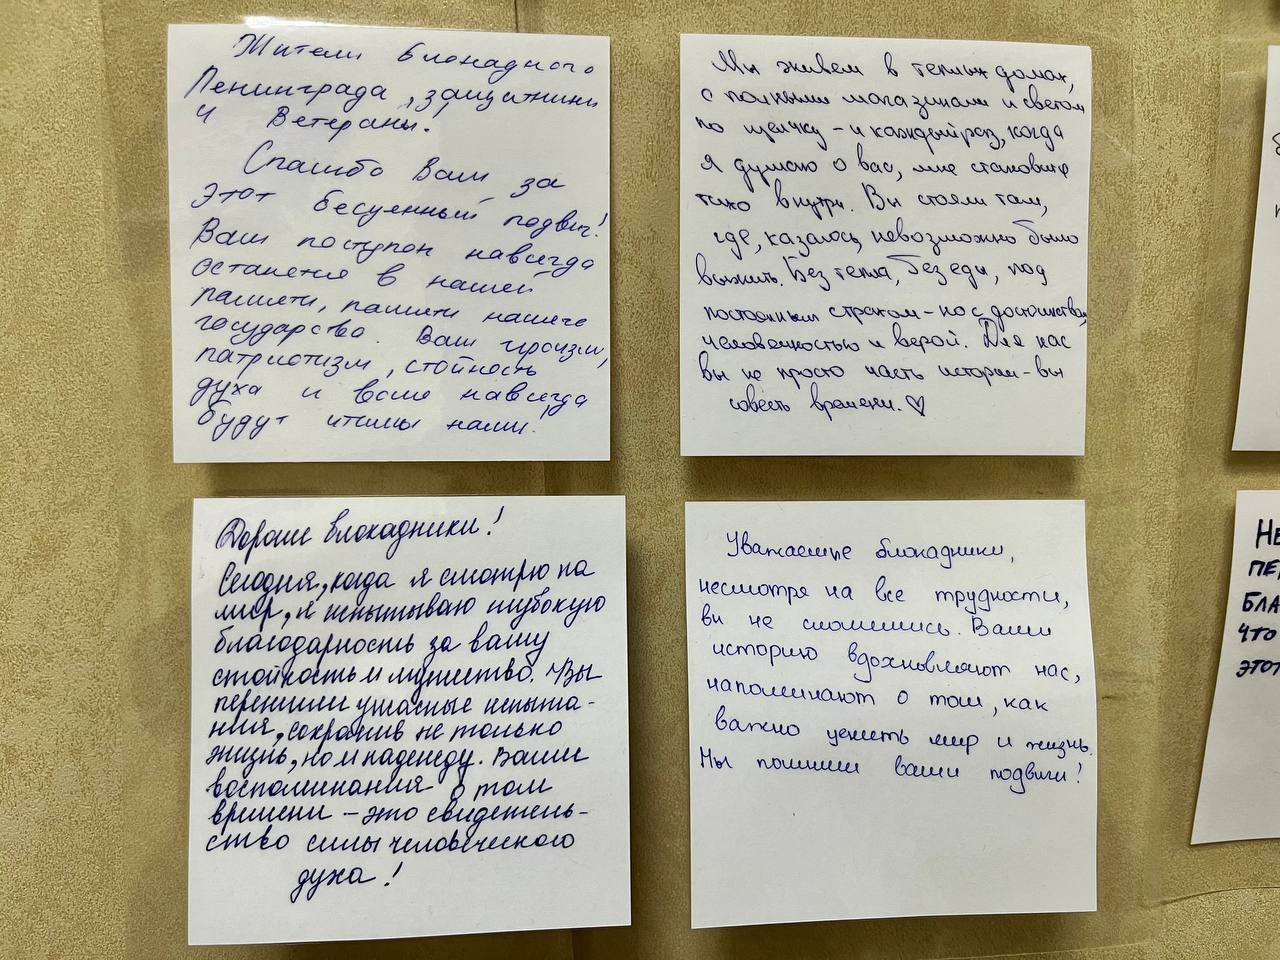 Жители блокадного
Ленинграда, защитники
и Ветераны!
Спасибо Вам за
этот бесценный подвиг!
Ваш поступок навсегда
останется в нашей
памяти, памяти нашего
государства. Ваш героизм,
патриотизм, стойкость
духа и воля навсегда
будут чтимы нами!
Мы живем в теплых домах,
с полными магазинами и светом
по щелчку – и каждый раз, когда
я думаю о вас, мне становится
тихо внутри. Вы стояли там,
где, казалось, невозможно было
выжить. Без тепла, без еды, под
постоянным страхом – но с достоинством,
человечностью и верой. Для нас
вы не просто часть истории – вы
совесть времени. ♡
Дорогие блокадники!
Сегодня, когда я смотрю на
мир, я испытываю глубокую
благодарность за вашу
стойкость и мужество. Вы
пережили ужасные испыта-
ния, сохранив не только
жизнь, но и надежду. Ваши
воспоминания о том
времени – это свидетель-
ство силы человеческого
духа!
Уважаемые блокадники,
несмотря на все трудности,
вы не сломались. Ваши
историю вдохновляют нас,
напоминают о том, как
важно ценить мир и жизнь.
Мы помним ваши подвиги!
НЕ
ПЕР
БЛА
ЧТО
ЭТОТ